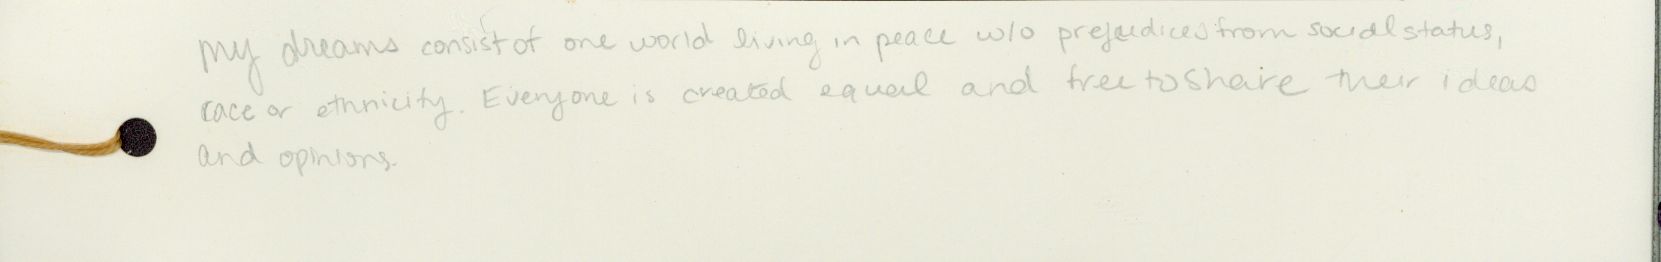 My dreams consist of one world living in peace w/o prejudices from social status,
race or ethnicity. Everyone is created equal and free to share their ideas
and opinions.